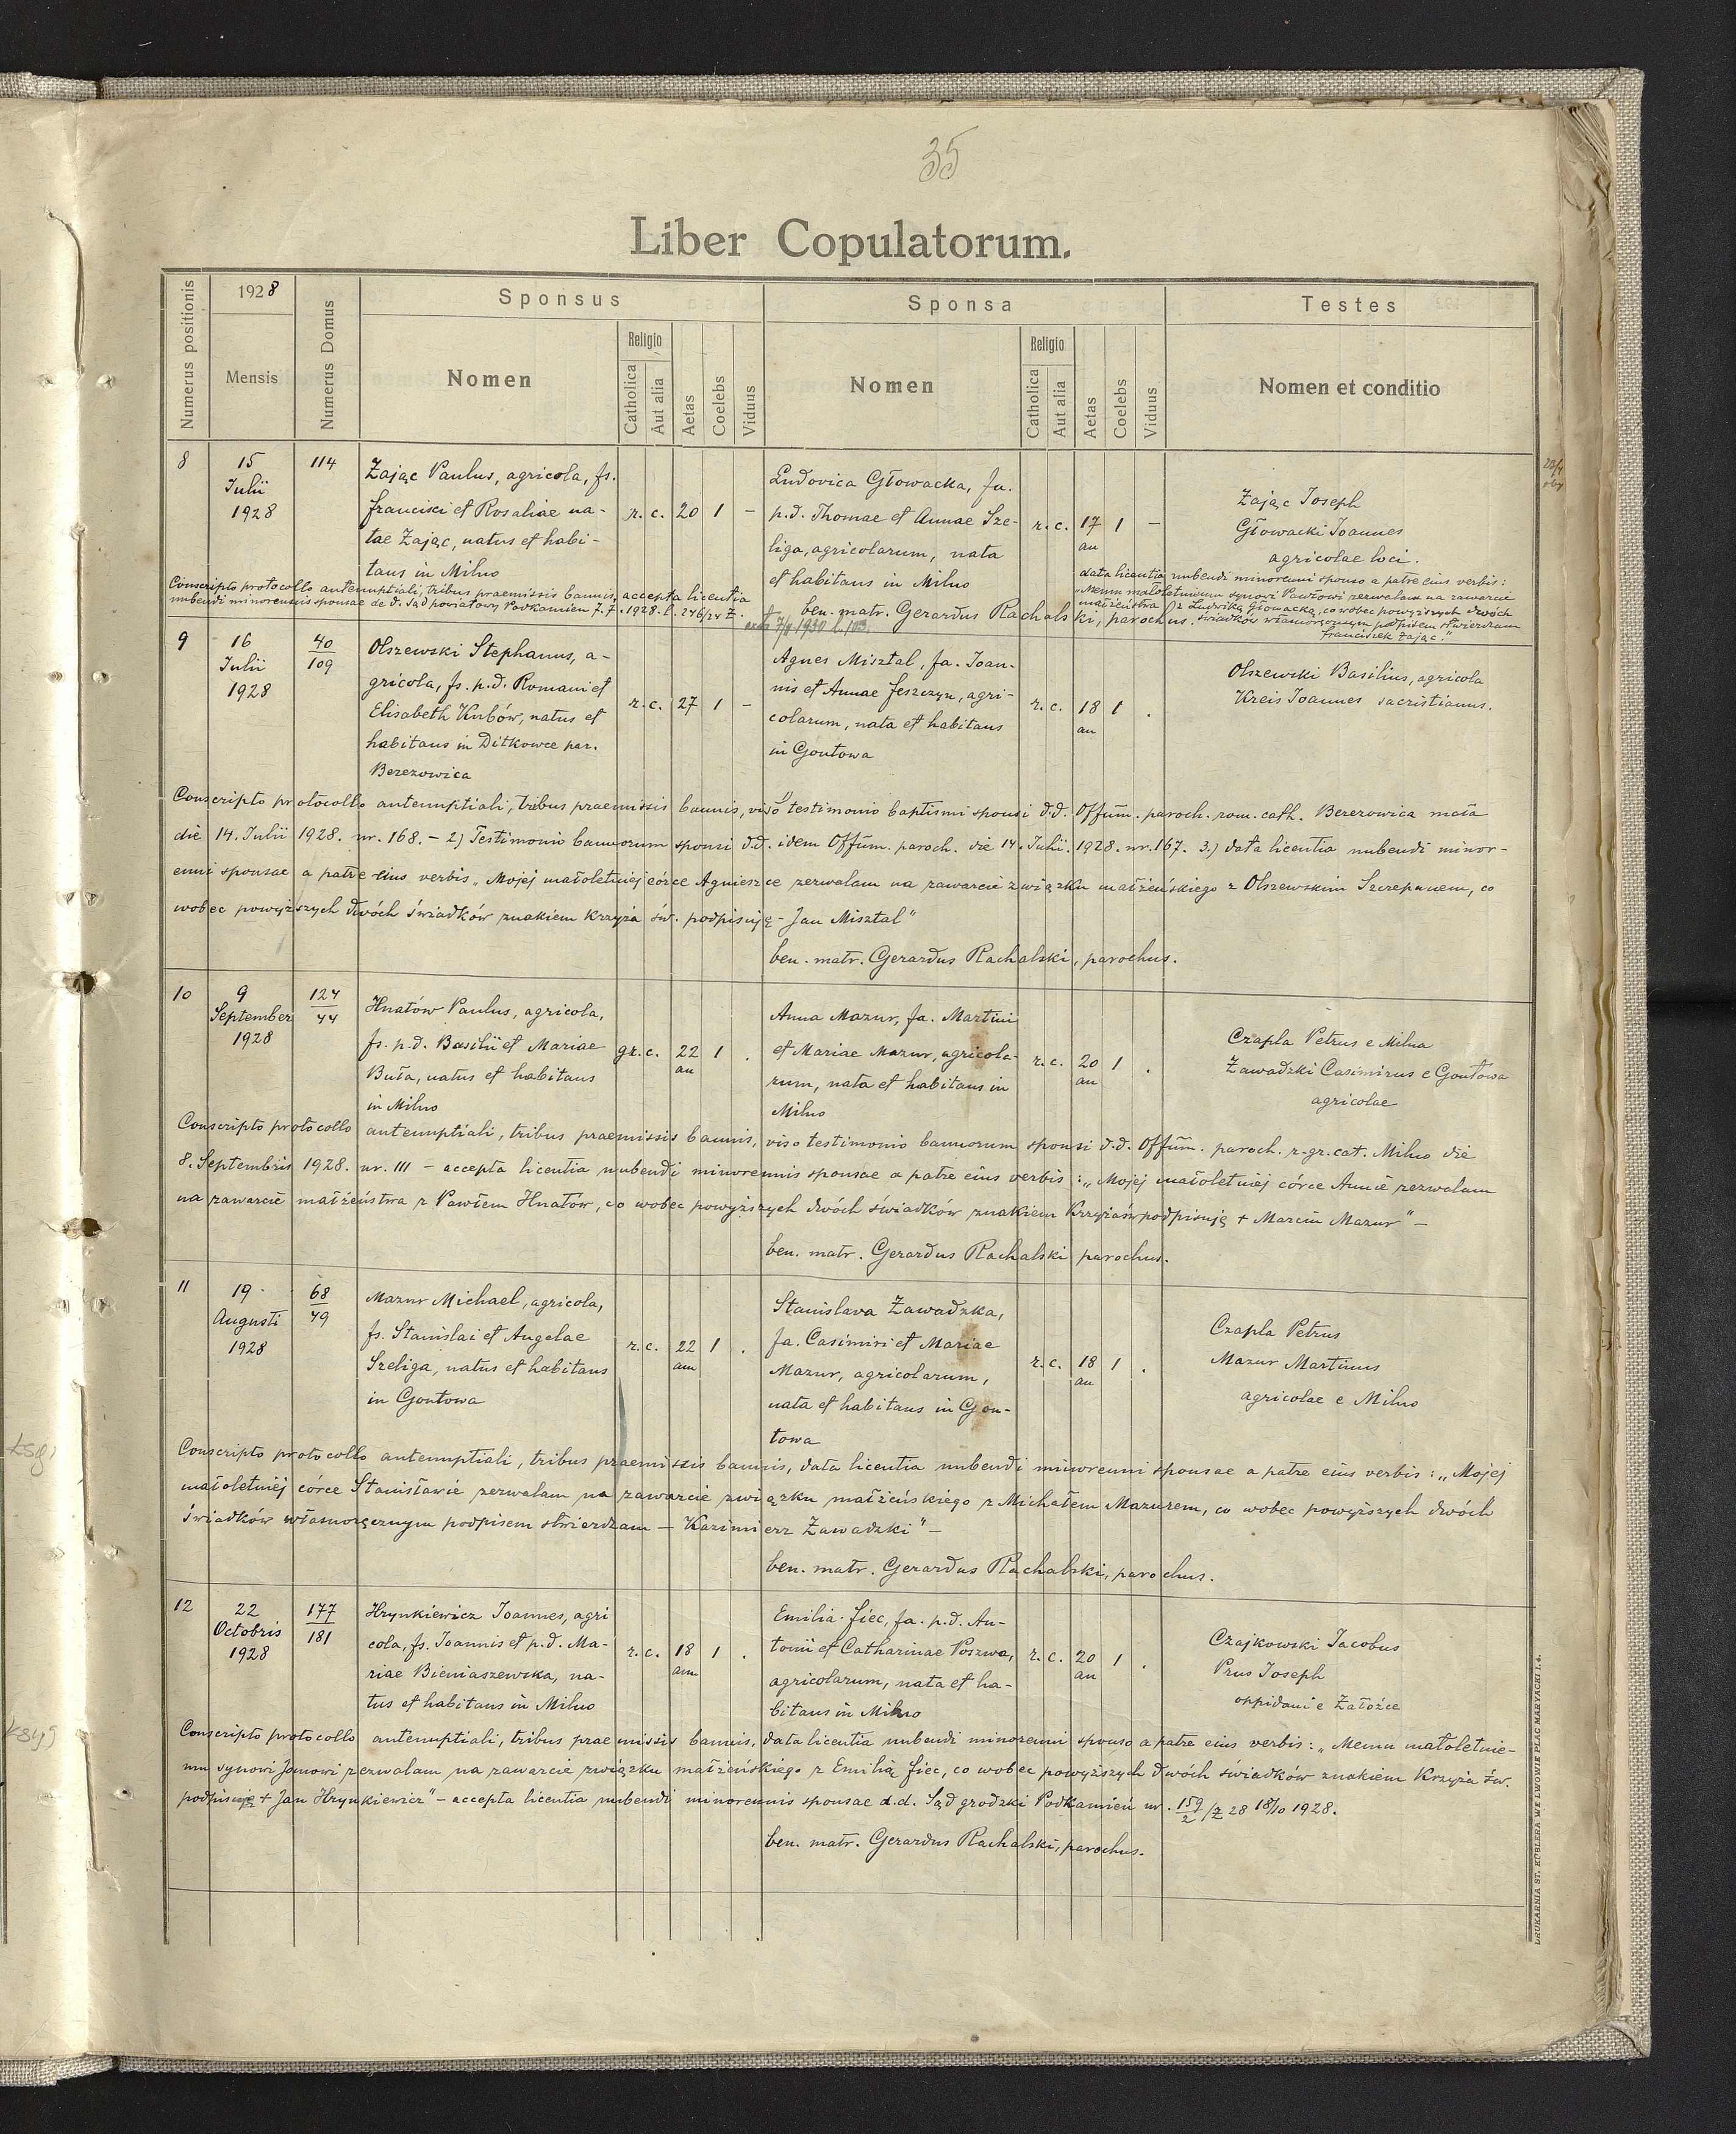 35
Liber Copulatorum.
Numerus positionis
1928
Mensis
Numerus Domus
Sponsus
Nomen
Religio
Catholica
Aut alia
Aetas
Coelebs
Viduus
Sponsa
Nomen
Religio
Catholica
Aut alia
Aetas
Coelebs
Viduus
Testes
Nomen et conditio
8
15
Julii
1928
114
Zając Paulus, agricola, fs.
Francisci et Rosaliae na-
tae Zając, natus et habi-
tans in Milno
r. c. 20 1 -
Ludovica Głowacka, fa.
p.d. Thomae et Annae Sze-
liga, agricolarum, nata
et habitans in Milno
r. c. 17 1 -
an
Zając Joseph
Głowacki Joannes
agricolae loci.
Conscripto protocollo antenuptiali, tribus praemissis bannis, accepta licentia
nubendi minorennis sponsae de d. Sąd powiatowy Podkamień 7.7.1928. l. 246/24 Z.
7/II 1930 l. 103.
data licentia nubendi minorenni sponso a patre eius verbis:
"Memu małoletniemu synowi Pawłowi zezwalam na zawarcie
małżeństwa z Ludwiką Głowacką, co wobec powyższych dwóch
świadków własnoręcznym podpisem stwierdzam
Franciszek Zając."
ben. matr. Gerardus Rachalski, parochus.
9
16
Julii
1928
40
109
Olszewski Stephanus, a-
gricola, fs. p.d. Romani et
Elisabeth Kubów, natus et
habitans in Ditkowce par.
Berezowica
r. c. 27 1 -
Agnes Misztal, fa. Joan-
nis et Annae Feszczyn, agri-
colarum, nata et habitans
in Gontowa
r. c. 18 1 .
an
Olszewski Basilius, agricola
Kreis Joannes sacristianus.
Conscripto protocollo antenuptiali, tribus praemissis bannis, viso 1) testimonio baptismi sponsi d.d. Offum. paroch. rom. cath. Berezowica mała
die 14. Julii 1928. nr. 168. - 2) Testimonio bannorum sponsi d.d. idem Offum. paroch. die 14. Julii. 1928. nr. 167. 3.) data licentia nubendi minor-
enni sponsae a patre eius verbis "Mojej małoletniej córce Agnieszce zezwalam na zawarcie związku małżeńskiego z Olszewskim Szczepanem, co
wobec powyższych dwóch świadków znakiem krzyża św. podpisuję - Jan Misztal"
ben. matr. Gerardus Rachalski, parochus.
10
9
September
1928
124
44
Hnatów Paulus, agricola,
fs. p.d. Basilii et Mariae
Buła, natus et habitans
in Milno
gr. c. 22 1 .
an
Anna Mazur, fa. Martini
et Mariae Mazur, agricola-
rum, nata et habitans in
Milno
r. c. 20 1 .
an
Czapla Petrus e Milna
Zawadzki Casimirus e Gontowa
agricolae
Conscripto protocollo antenuptiali, tribus praemissis bannis, viso testimonio bannorum sponsi d.d. Offum. paroch. r. gr. cat. Milno die
8. Septembris 1928. nr. 111 - accepta licentia nubendi minorennis sponsae a patre eius verbis: "Mojej małoletniej córce Annie zezwalam
na zawarcie małżeństwa z Pawłem Hnatów, co wobec powyższych dwóch świadków znakiem krzyża św podpisuję + Marcin Mazur" -
ben. matr. Gerardus Rachalski parochus.
11
19
Augusti
1928
68
49
Mazur Michael, agricola,
fs. Stanislai et Angelae
Szeliga, natus et habitans
in Gontowa
r. c. 22 1 .
ann
Stanislava Zawadzka,
fa. Casimiri et Mariae
Mazur, agricolarum,
nata et habitans in Gon-
towa
r. c. 18 1 .
an
Czapla Petrus
Mazur Martinus
agricolae e Milno
Conscripto protocollo antenuptiali, tribus praemissis bannis, data licentia nubendi minorenni sponsae a patre eius verbis: "Mojej
małoletniej córce Stanisławie zezwalam na zawarcie związku małżeńskiego z Michałem Mazurem, co wobec powyższych dwóch
świadków własnoręcznym podpisem stwierdzam - Kazimierz Zawadzki" -
ben. matr. Gerardus Rachalski, parochus.
12
22
Octobris
1928
177
181
Hrynkiewicz Joannes, agri
cola, fs. Joannis et p.d. Ma-
riae Bieniaszewska, na-
tus et habitans in Milno
r. c. 18 1 .
ann
Emilia Fiec, fa. p.d. An-
tonii et Catharinae Poszwa,
agricolarum, nata et ha-
bitans in Milno
r. c. 20 1 .
an
Czajkowski Jacobus
Prus Joseph
oppidani e Załoźce
Conscripto protocollo antenuptiali, tribus praemissis bannis, data licentia nubendi minorenni sponso a patre eius verbis: "Memu małoletnie-
mu synowi Janowi zezwalam na zawarcie związku małżeńskiego z Emilią Fiec, co wobec powyższych dwóch świadków znakiem Krzyża św.
podpisuję + Jan Hrynkiewicz" - accepta licentia nubendi minorennis sponsae d.d. Sąd grodzki Podkamień nr. 159/2 /Z 28 18/10 1928.
ben. matr. Gerardus Rachalski, parochus.
DRUKARNIA ST. KÜBLERA WE LWOWIE PLAC MARYACKI L. 4.